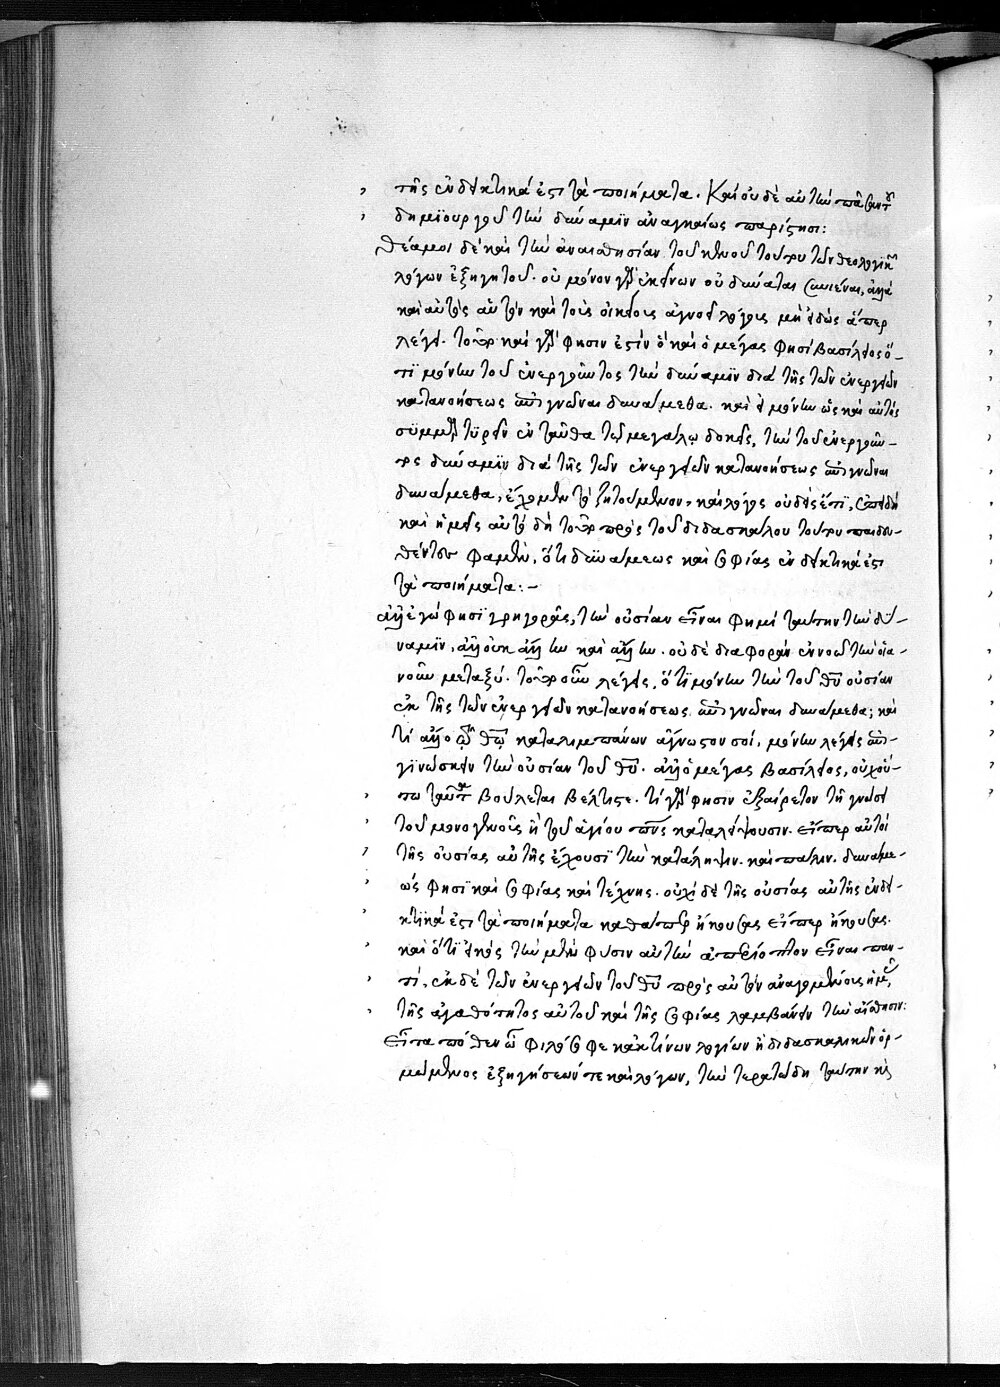 τῆς ἐνδεικτικά ἐστι τὰ ποιήματα. Καὶ οὐδὲ αὐτὴν πᾶσαν τοῦ
δημιουργοῦ τὴν δύναμιν ἀναγκαίως παρίστησι:
θέα μοι δὲ καὶ τὴν ἀναισθησίαν τοῦ καινοῦ τούτου τῶν θεολογικῶν
λόγων ἐξηγητοῦ. οὐ μόνον γὰρ ἐκείνων οὐ δύναται συνιέναι, ἀλλὰ
καὶ αὐτὸς αὑτὸν καὶ τοὺς οἰκείους ἀγνοεῖ λόγους μὴ εἰδὼς ἅπερ
λέγει. τοῦτο καὶ γάρ φησιν ἐστὶν ὃ καὶ ὁ μέγας φησὶ βασίλειος ὅ-
τι μόνην τοῦ ἐνεργοῦντος τὴν δύναμιν διὰ τῆς τῶν ἐνεργειῶν
κατανοήσεως ἀπογνῶναι δυνάμεθα. καὶ εἰ μόνην ὡς καὶ αὐτὸς
συμμαρτυρεῖν ἐνταῦθα τῷ μεγάλῳ δοκεῖς, τὴν τοῦ ἐνεργοῦν-
τος δύναμιν διὰ τῆς τῶν ἐνεργειῶν κατανοήσεως ἀπογνῶναι
δυνάμεθα, ἔχομεν τὸ ζητούμενον, καὶ λόγος οὐδεὶς ἔτι, ἐπειδὴ
καὶ ἡμεῖς αὐτὸ δὴ τοῦτο πρὸς τοῦ διδασκάλου τούτου παιδευ-
θέντες φαμὲν, ὅτι δυνάμεως καὶ σοφίας ἐνδεικτικά ἐστι
τὰ ποιήματα:-
ἀλλ' ἐγώ φησι γρηγορᾶς, τὴν οὐσίαν εἶναί φημι ταύτην τὴν δύ-
ναμιν, ἀλλ' οὐκ ἄλλην καὶ ἄλλην. οὐδὲ διαφορὰν ἐννοῶ τὴν οἱα-
νοῦν μεταξύ. τοῦτο οὖν λέγεις, ὅτι μόνην τὴν τοῦ θεοῦ οὐσίαν
ἐκ τῆς τῶν ἐνεργειῶν κατανοήσεως ἀπογνῶναι δυνάμεθα; καὶ
τί ἄλλο ὦ θεῷ καταλιμπάνων ἄγνωστον σοί, μόνην λέγεις ἀπο-
γινώσκειν τὴν οὐσίαν τοῦ θεοῦ. ἀλλ' ὁ μέγας βασίλειος, οὐχ οὕ-
τω ταῦτα βούλεται βέλτιστε. τί γάρ φησιν ἐξαίρετον τῇ γνώσει
τοῦ μονογενοῦς ἢ τοῦ ἁγίου πνεύματος καταλείψουσιν. εἴπερ αὐτοὶ
τῆς οὐσίας αὐτῆς ἔχουσι τὴν κατάληψιν. καὶ πάλιν. δυνάμε-
ώς φησι καὶ σοφίας καὶ τέχνης. οὐχὶ δὲ τῆς οὐσίας αὐτῆς ἐνδει-
κτικά ἐστι τὰ ποιήματα καθάπερ ἤκουσας εἴπερ ἤκουσας.
καὶ ὅτι εἰκὸς τὴν μὲν φύσιν αὐτὴν ἀπερίοπτον εἶναι παν-
τί, ἐκ δὲ τῶν ἐνεργειῶν τοῦ θεοῦ πρὸς αὐτὸν ἀναγομένους ἡμᾶς,
τῆς ἀγαθότητος αὐτοῦ καὶ τῆς σοφίας λαμβάνειν τὴν αἴσθησιν:
εἶτα πόθεν ὦ φιλόσοφε κἀκ τίνων λογίων ἢ διδασκαλικῶν ὁρ-
μώμενος ἐξηγήσεών τε καὶ λόγων, τὴν τερατώδη ταύτην εἰς